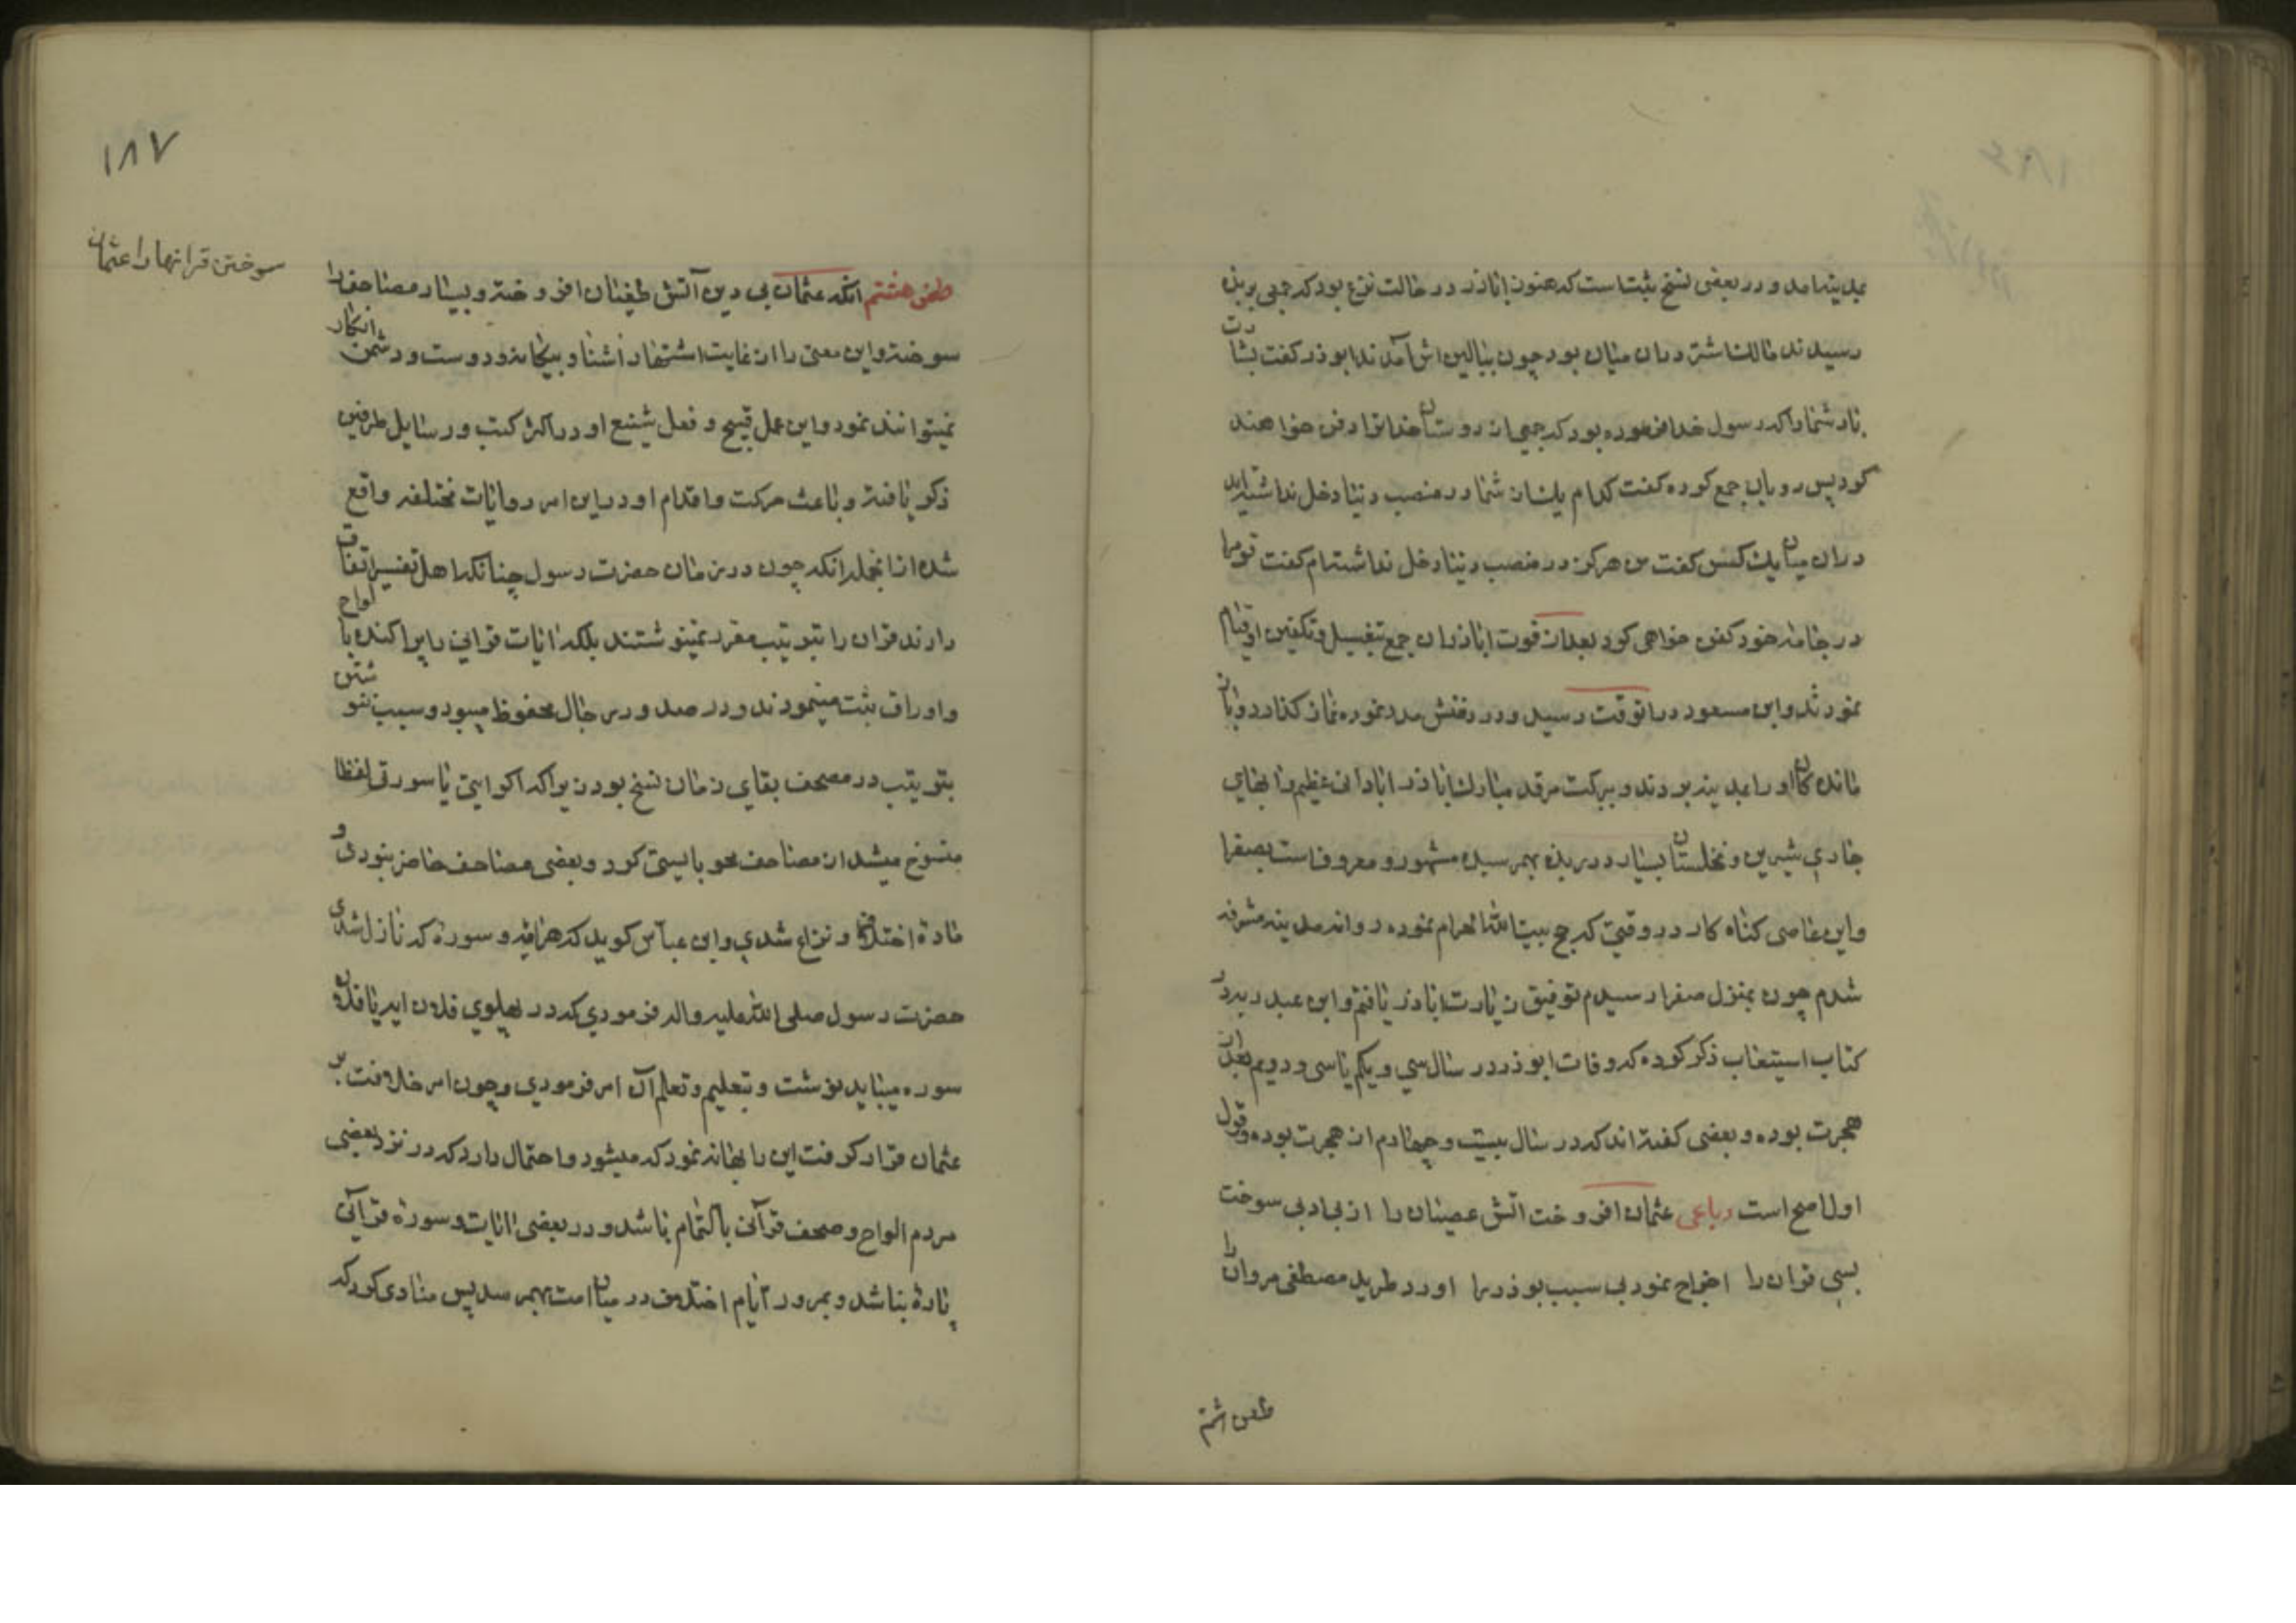 بمدینه آمد و در بعضی نسخ ثبتاست که هنوز اباذر در حالت نزع بود که جمعی بربذه
رسیدند مالك اشتر در ان میان بود چون ببالین اش آمدند ابوذر کفت بشارت
باد شما را که رسول خدا فرموده بود که جمعی از دوستان خدا ترا دفن خواهند
کرد پس رو بان جمع کرده کفت کدام یك از شما در منصب دنیا دخل نداشته اید
در ان میان یك کس کفت من هرکز در منصب دنیا دخل نداشته ام کفت تو مرا
در جامه خود کفن خواهی کرد بعد از فوت اباذر ان جمع بتغسیل و تکفین او قیام
نمودند و ابن مسعود در انوقت رسید و در دفنش مدد نموده نماز کذارد و
مانده کان او را بمدینه بودند و ببرکت مرقد مبارك اباذر ابادانی عظیم و
جاری شیرین و نخلستان بسیار در ربذه بهم رسیده مشهور و معروف است بصفرا
و این عاصی کناه کار در وقتی که حج بیت الله الحرام نموده روانه مدینه مشرفه
شدم چون بمنزل صفرا رسیدم توفیق زیارت اباذر یافتم و ابن عبد ربه در
کتاب استیعاب ذکر کرده که وفات ابوذر در سال سی و یکم یا سی و دویم بعد از
هجرت بوده و بعضی کفته اند که در سال بیست و چهارم از هجرت بوده و قول
اول اصح است رباعی عثمان افروخت اتش عصیان را از بی ادبی سوخت
بسی قران را اخراج نمود بی سبب بوذر را اورد طرید مصطفی مروان را
طعن هشتم
۱۸۷
سوختن قرانها را عثمان
طعن هشتم انکه عثمان بی دین آتش طغیان افروخته و بسیار مصاحف را
سوخته و این معنی را از غایت اشتهار اشنا و بیکانه و دوست و دشمن انکار
نمیتوانند نمود و این عمل قبیح و فعل شنیع او در اکثر کتب و رسایل طرفین
ذکر یافته و باعث حرکت و اقدام او در این امر روایات مختلفه واقع
شده از انجمله انکه چون در زمان حضرت رسول چنانکه اهل تفسیر اتفاق
دارند قران را بترتیب مقرر نمینوشتند بلکه ایات قرانی را پراکنده بالواح
و اوراق ثبت مینمودند و در صدور رجال محفوظ میبود و سبب ننوشتن
بترتیب در مصحف بقای زمان نسخ بود زیراکه اکر ایتی یا سورتی لفظا
منسوخ میشد از مصاحف محو بایستی کرد و بعضی مصاحف حاضر نبودی و
مادهٔ اختلاف و نزاع شدی و ابن عباس کوید که هر ایه و سوره که نازل شدی
حضرت رسول صلی الله علیه و اله فرمودی که در پهلوی فلان ایه یا فلان
سوره میباید نوشت و بتعلیم و تعلم آن امر فرمودی و چون امر خلافت بر
عثمان قرار کرفت این را بهانه نمود که میشود و احتمال دارد که در نزد بعضی
مردم الواح و صحف قرآنی بالتمام باشد و در بعضی ایات و سورهٔ قرآنی
پارهٔ نباشد و بمرور ایام اختلاف در میان امت بهم رسد پس منادی کرد که